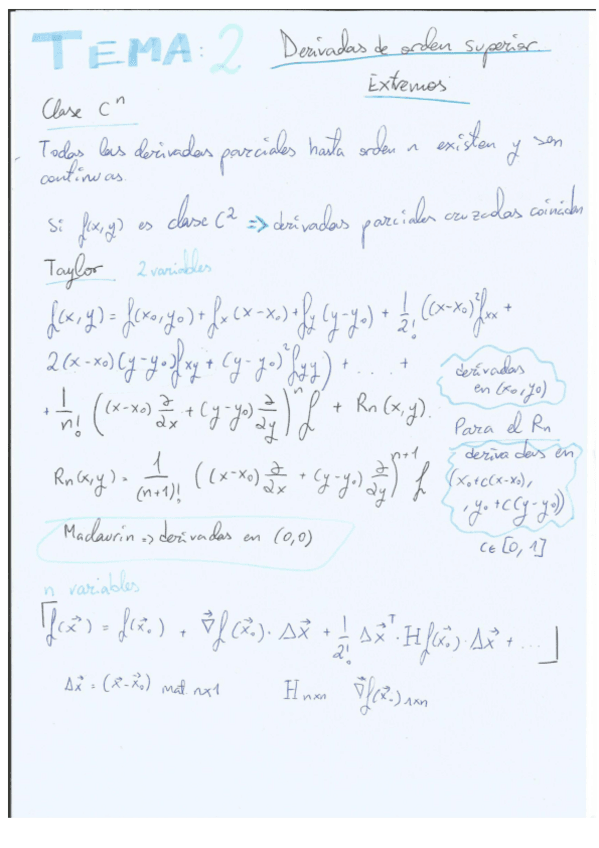 TEMA: 2 Derivadas de orden superior
Extremos
Clase Cⁿ
Todas las derivadas parciales hasta orden n existen y son
continuas.
Si f(x,y) es clase C² => derivadas parciales cruzadas coinciden
Taylor 2 variables
f(x,y) = f(x₀,y₀) + fₓ(x-x₀) + f_y(y-y₀) + 1/2! ((x-x₀)² fₓₓ +
2(x-x₀)(y-y₀) f_xy + (y-y₀)² f_yy) + .... +
+ 1/n! ((x-x₀) ∂/∂x + (y-y₀) ∂/∂y)ⁿ f + Rn(x,y).
derivadas
en (x₀,y₀)
Rn(x,y) = 1/(n+1)! ((x-x₀) ∂/∂x + (y-y₀) ∂/∂y)ⁿ⁺¹ f
Para el Rn
derivadas en
(x₀+c(x-x₀),
, y₀+c(y-y₀))
c∈[0,1]
Maclaurin => derivadas en (0,0)
n variables
f(x⃗) = f(x⃗₀) + ∇⃗f(x⃗₀)·Δx⃗ + 1/2! Δx⃗ᵀ·Hf(x⃗₀)·Δx⃗ + ...
Δx⃗ = (x⃗-x⃗₀) mat. nx1 H nxn ∇⃗f(x⃗₀) 1xn